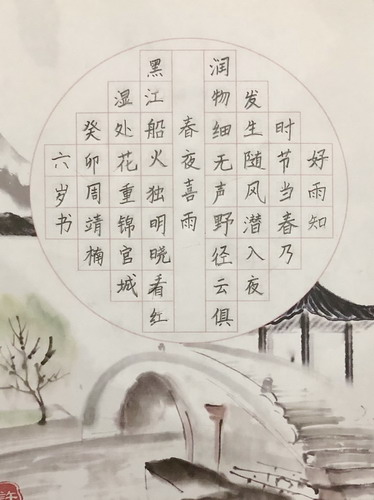 好雨知
时节当春乃
发生随风潜入夜
润物细无声野径云俱
春夜喜雨
黑江船火独明晓看红
湿处花重锦官城
癸卯周靖楠
六岁书